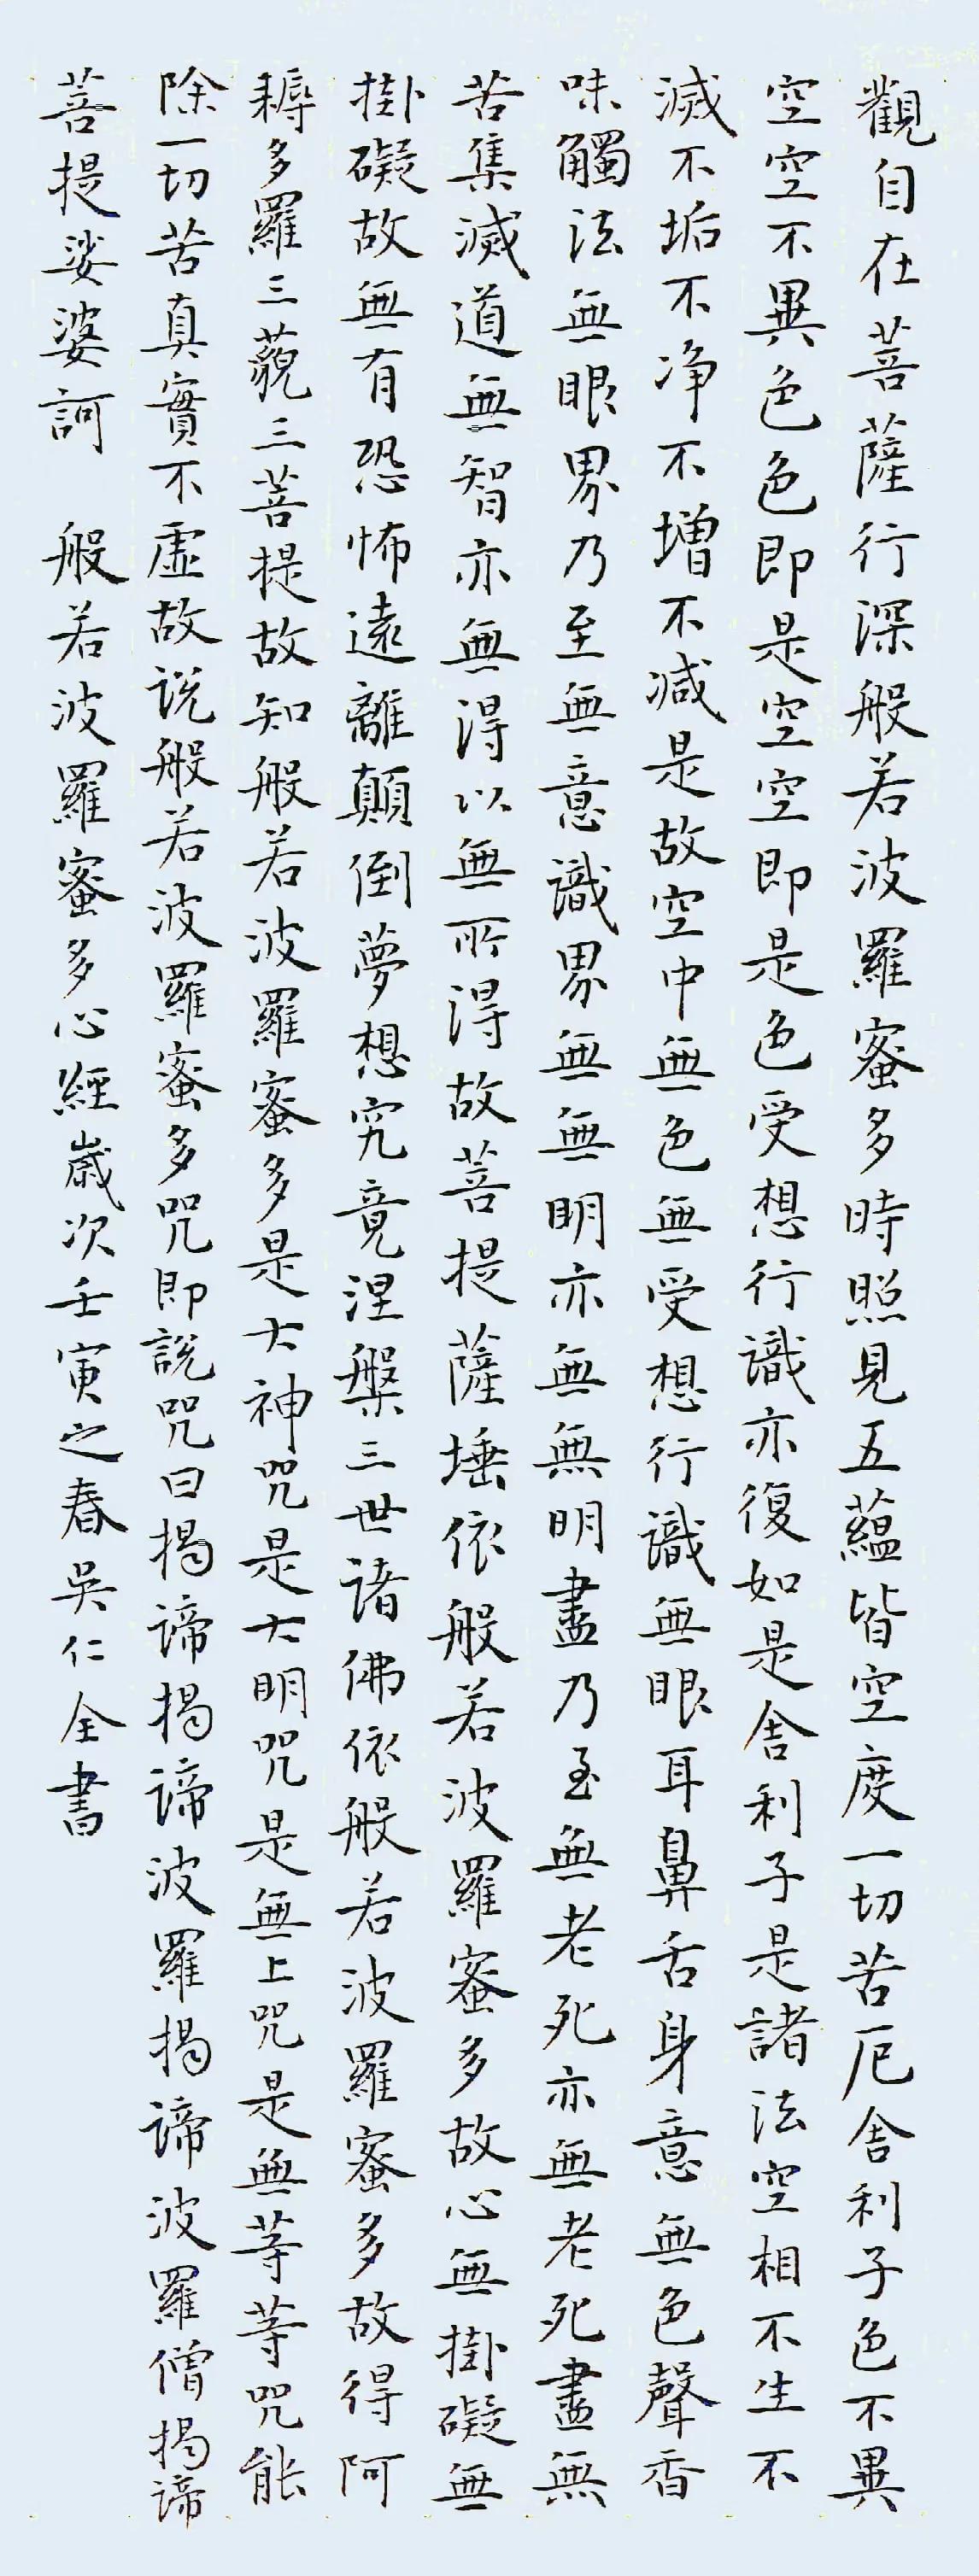 觀自在菩薩行深般若波羅蜜多時照見五蘊皆空度一切苦厄舍利子色不異
空空不異色色即是空空即是色受想行識亦復如是舍利子是諸法空相不生不
滅不垢不净不增不減是故空中無色無受想行識無眼耳鼻舌身意無色聲香
味觸法無眼界乃至無意識界無無明亦無無明盡乃至無老死亦無老死盡無
苦集滅道無智亦無得以無所得故菩提薩埵依般若波羅蜜多故心無掛礙無
掛礙故無有恐怖遠離顛倒夢想究竟涅槃三世諸佛依般若波羅蜜多故得阿
耨多羅三藐三菩提故知般若波羅蜜多是大神咒是大明咒是無上咒是無等等咒能
除一切苦真實不虛故説般若波羅蜜多咒即説咒曰揭諦揭諦波羅揭諦波羅僧揭諦
菩提娑婆訶 般若波羅蜜多心經歲次壬寅之春吳仁全書